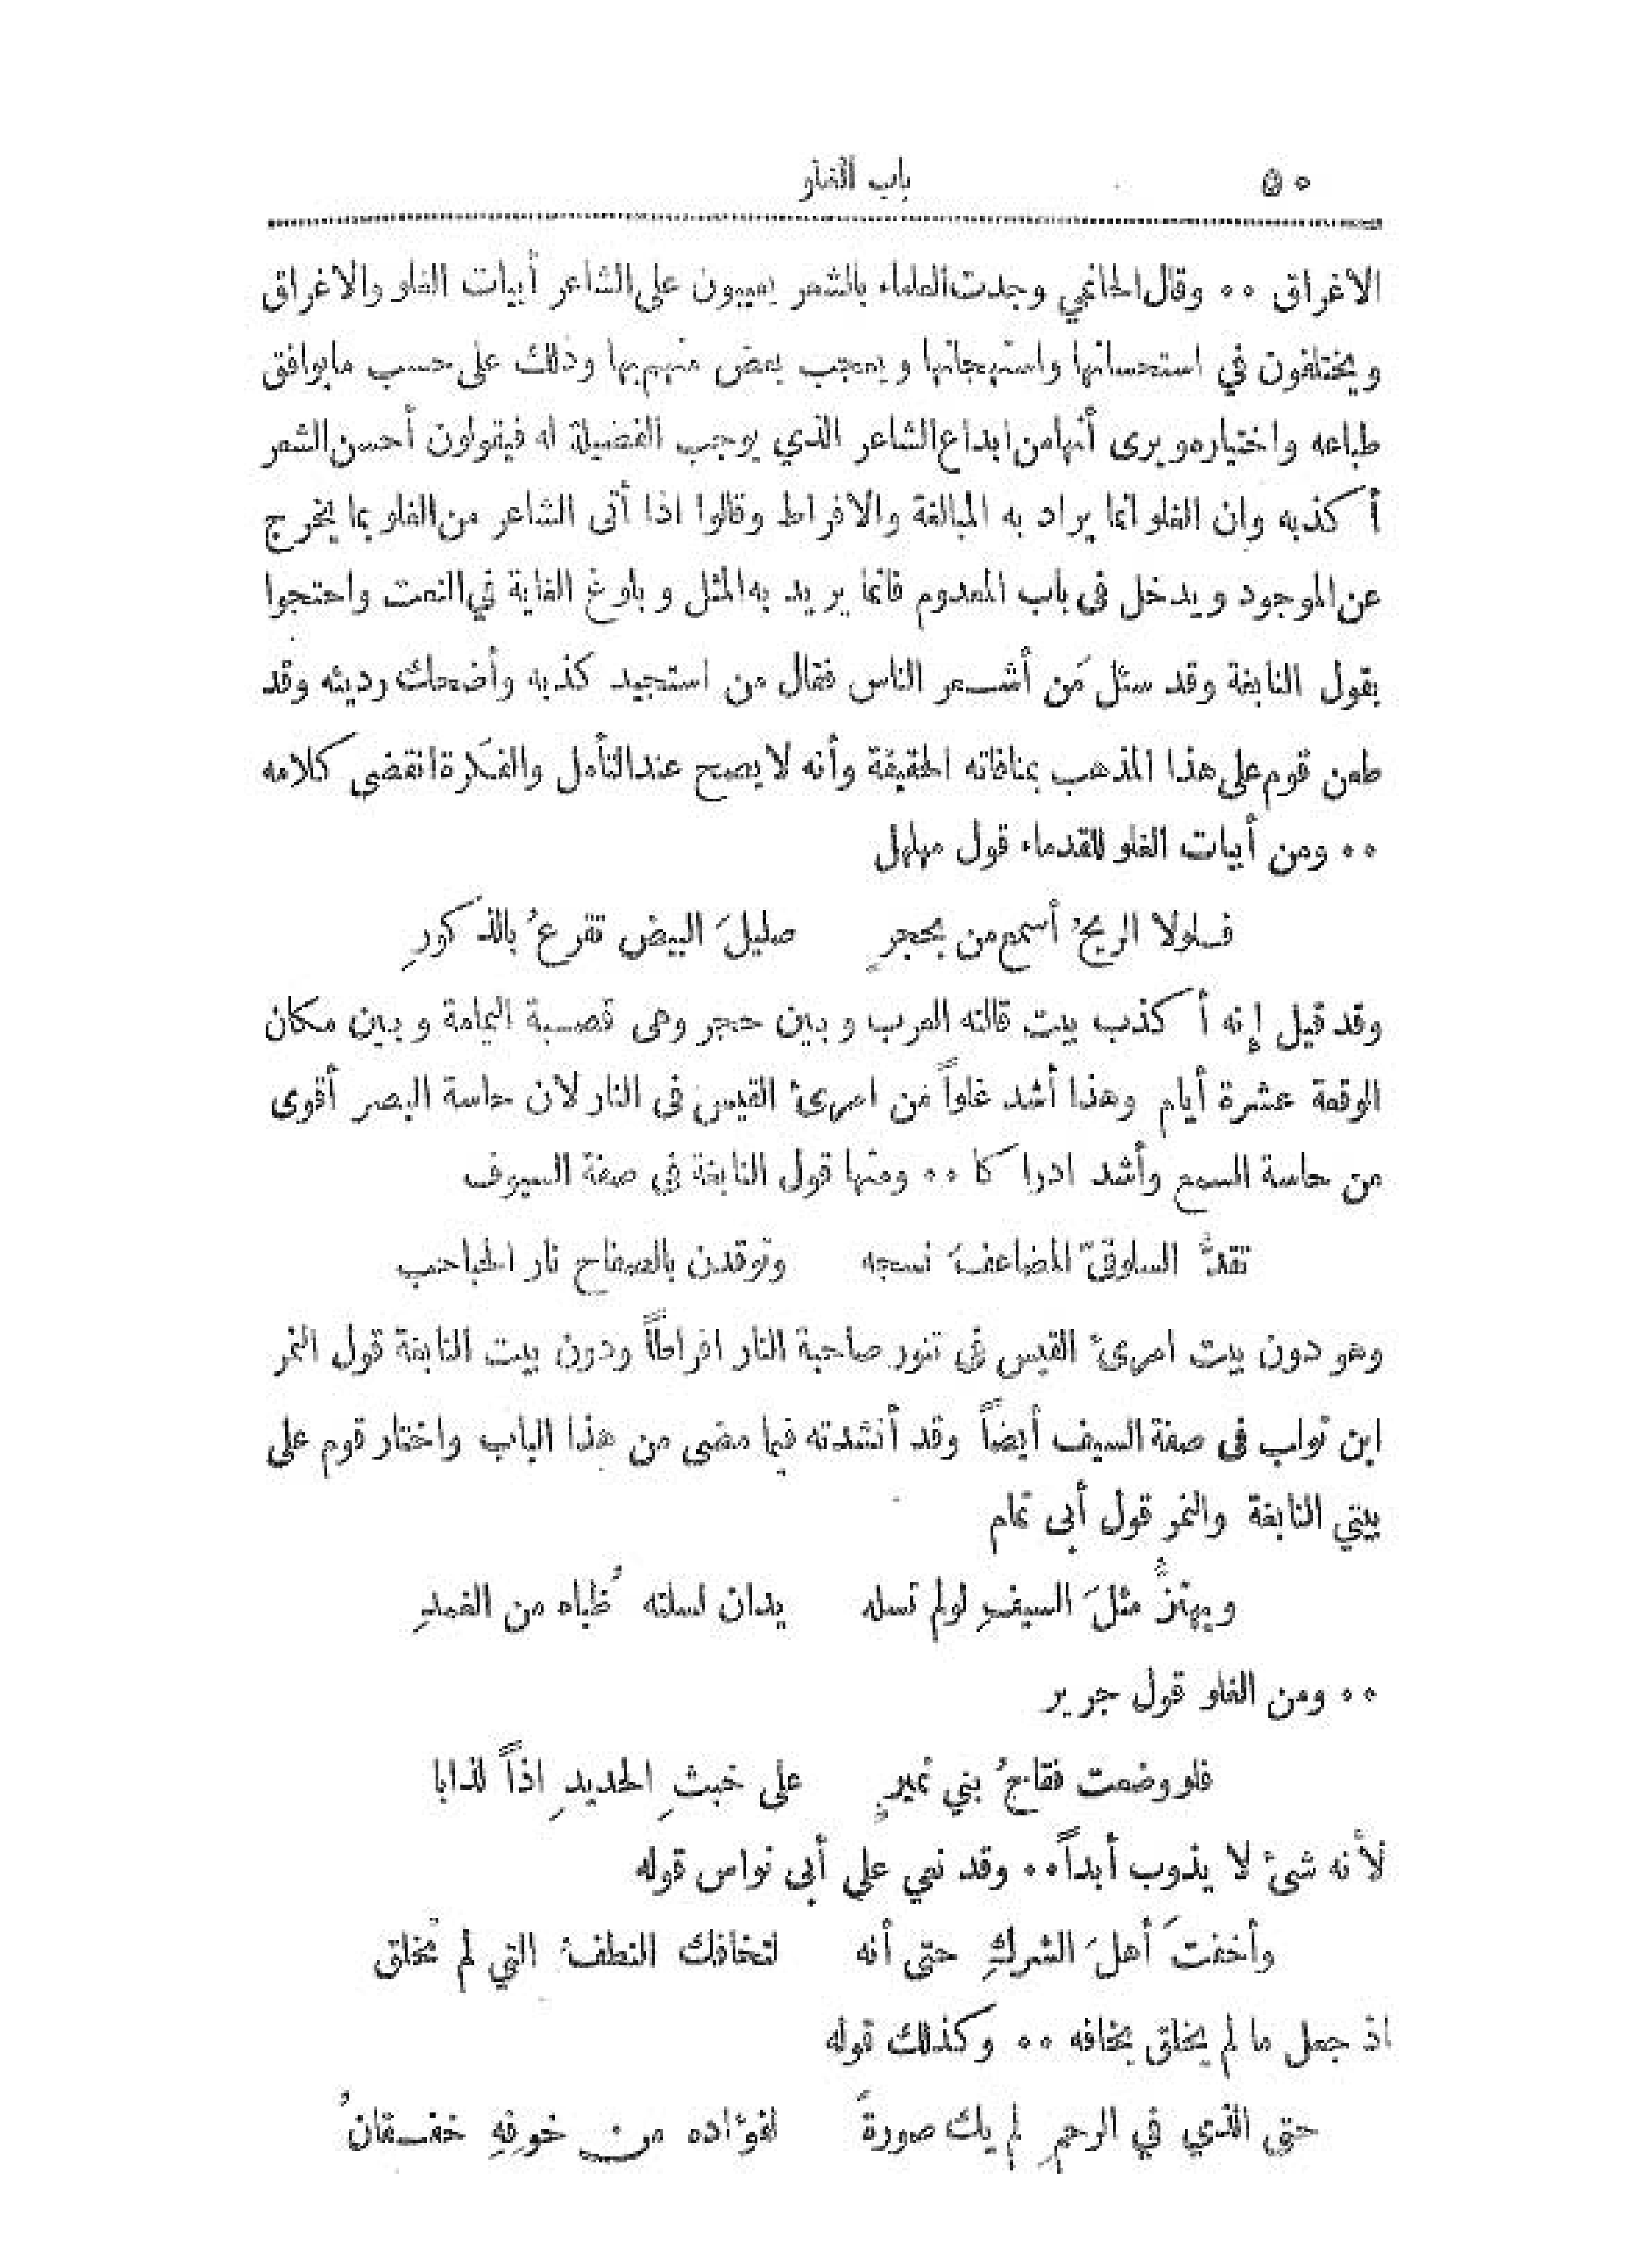 ٥٠ باب الغلو
الاغراق ٠٠ وقال الحاتمي وجدت العلماء بالشعر يعيبون على الشاعر أبيات الغلو والاغراق
ويختلفون في استحسانها واستهجانها ويعجب بعض منهم بها وذلك على حسب مايوافق
طباعه واختياره ويرى أنها من ابداع الشاعر الذي يوجب الفضيلة له فيقولون أحسن الشعر
أكذبه وان الغلو انما يراد به المبالغة والافراط وقالوا اذا أتى الشاعر من الغلو بما يخرج
عن الموجود ويدخل فى باب المعدوم فانما يريد به المثل وبلوغ الغاية في النعت واحتجوا
بقول النابغة وقد سئل مَن أشعر الناس فقال من استجيد كذبه وأضحك رديئه وقد
طعن قوم على هذا المذهب بمنافاته الحقيقة وأنه لا يصح عند التأمل والفكرة انقضى كلامه
٠٠ ومن أبيات الغلو للقدماء قول مهلهل
فلولا الريحُ أسمع من بحجرٍ صليلَ البيض تقرعُ بالذكورِ
وقد قيل إنه أكذب بيت قالته العرب وبين حجر وهى قصبة اليمامة وبين مكان
الوقعة عشرة أيام وهذا أشد غلواً من امرئ القيس فى النار لان حاسة البصر أقوى
من حاسة السمع وأشد ادراكا ٠٠ ومنها قول النابغة فى صفة السيوف
تقدُّ السلوقىّ المضاعفَ نسجه وتوقدن بالصفاح نار الحباحب
وهو دون بيت امرئ القيس فى تنور صاحبة النار افراطاً ودون بيت النابغة قول النمر
ابن تولب فى صفة السيف أيضاً وقد أنشدته فيما مضى من هذا الباب واختار قوم على
بيتي النابغة والنمر قول أبى تمام
ويهتزُّ مثلَ السيفِ لولم تسله يدان لسلته ُظباه من الغمدِ
٠٠ ومن الغلو قول جرير
فلو وضعت فقاحُ بني نميرٍ على خبثِ الحديدِ اذاً لذابا
لأنه شئ لا يذوب أبداً ٠٠ وقد نعي على أبى نواس قوله
وأخفتَ أهلَ الشركِ حتى أنه لتخافك النطفُ التي لم تُخلق
اذ جعل ما لم يخلق يخافه ٠٠ وكذلك قوله
حتى الذي في الرحمِ لم يك صورةً لفؤاده من خوفِهِ خفقانُ